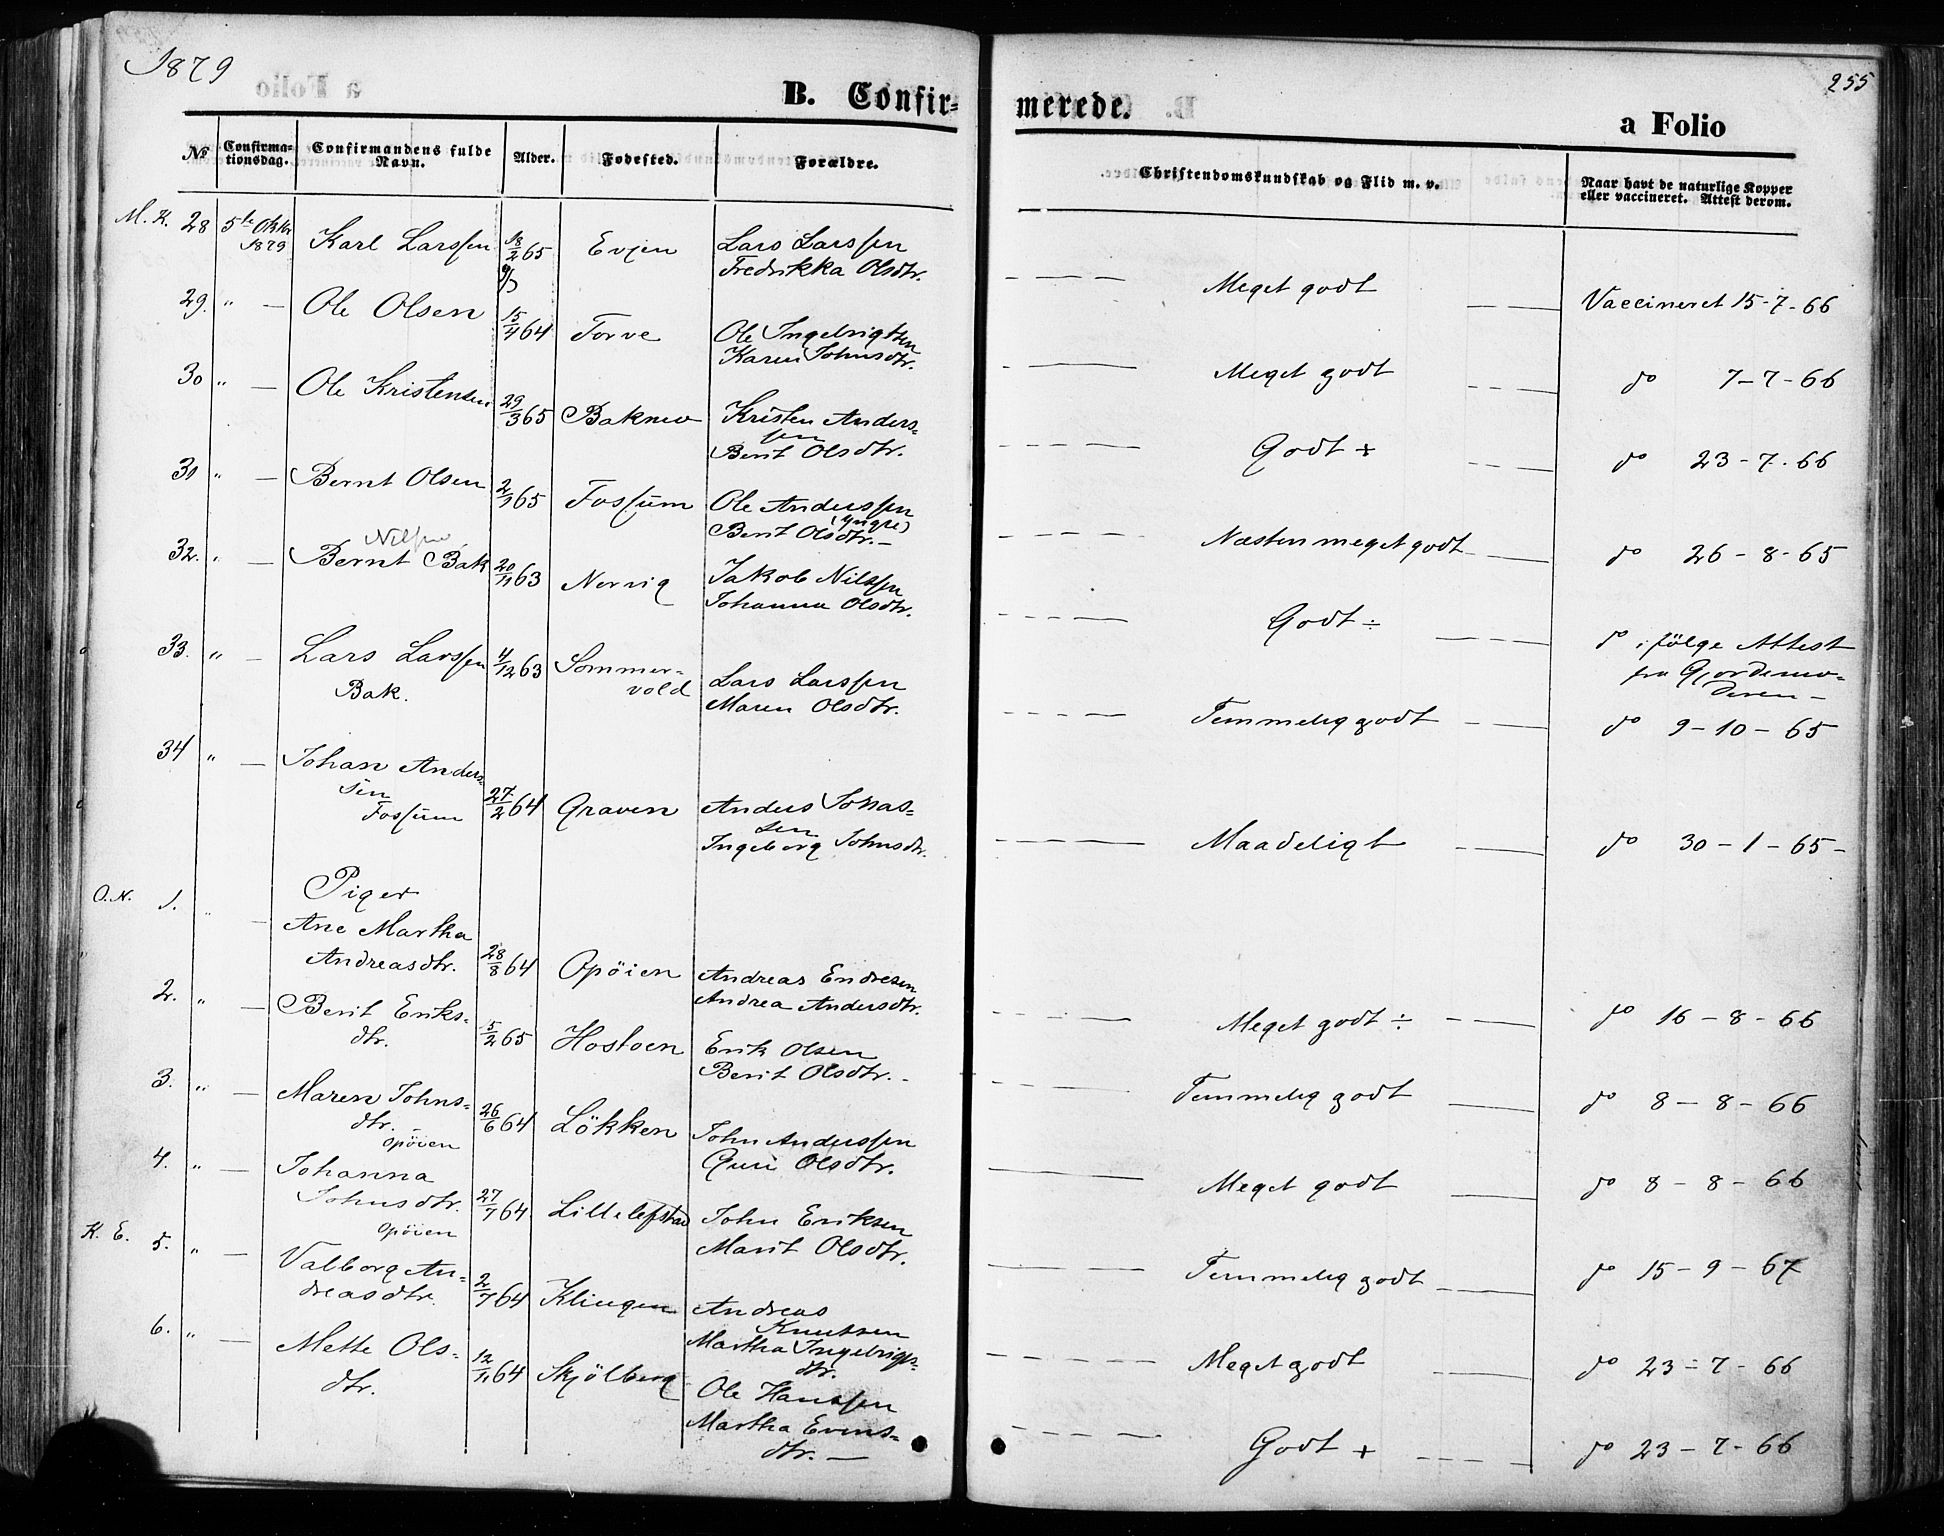 1879
B. Confir=
№ Confirma=tionsdag. Confirmandens fulde Navn. Alder. Fødested. Forældre.
M. K. 28 5te Oktbr 1879 Karl Larssen 18/2 65 Evjen Lars Larssen
Fredrikka Olsdtr.
29. " — Ole Olsen 15/4 64 Torve Ole Ingebrigtsen
Karen Johnsdtr.
30 " — Ole Kristensen 29/3 65 Baknev Kristen Anders=
sen
Berit Olsdtr.
31 " — Bernt Olsen 2/1 65 Fossum Ole Anderssen
(yngre)
Berit Olsdtr. —
Nilsen
32. " — Bernt Bak 20/11 63 Norvig Jakob Nilssen
Johanna Olsdtr.
33. " — Lars Larssen 4/12 63 Sommer=
Bak. vold Lars Larssen
Maren Olsdtr.
34 " — Johan Anders=
sen
Fossum 27/2 64 Graven Anders Jonas=
sen
Ingeborg Johnsdtr.
Piger
O. N. 1. " — Ane Martha
Andreasdtr. 28/8 64 Opöien Andreas Endresen
Andrea Andersdtr.
2. " — Berit Eriks=
dtr. 5/2 65 Hostoen Erik Olsen
Berit Olsdtr. -
3. " — Maren Johns=
dtr. — 26/6 64 Lökken John Anderssen
Opöien
Guri Olsdtr.
4. " — Johanna
Johnsdtr. 27/7 64 Lillelefstad John Eriksen
Opöien
Marit Olsdtr.
K. E. 5. " — Valborg An=
dreasdtr. 2/7 64 Klingen Andreas
Knutsen
Martha Ingebrigts=
dtr.
6. " — Mette Ols=
dtr. 12/11 64 Skjölberg Ole Hanssen
Martha Evens=
dtr. —
255
merede.
a Folio
Christendomskundskab og Flid m. v. Naar havt de naturlige Kopper
eller vaccineret. Attest derom.
Meget godt Vaccineret 15-7-66
Meget godt do 7-7-66
Godt + do 23-7-66
Næsten meget godt do 26-8-65
Godt ÷ do ifölge Attest
fra Gjordemo=
deren —
Temmelig godt do 9-10-65
Maadeligt do 30-1-65-
Meget godt ÷ do 16-8-66
Temmelig godt do 8-8-66
Meget godt do 8-8-66
Temmelig godt do 15-9-67
Meget godt do 23-7-66
Godt + do 23-7-66